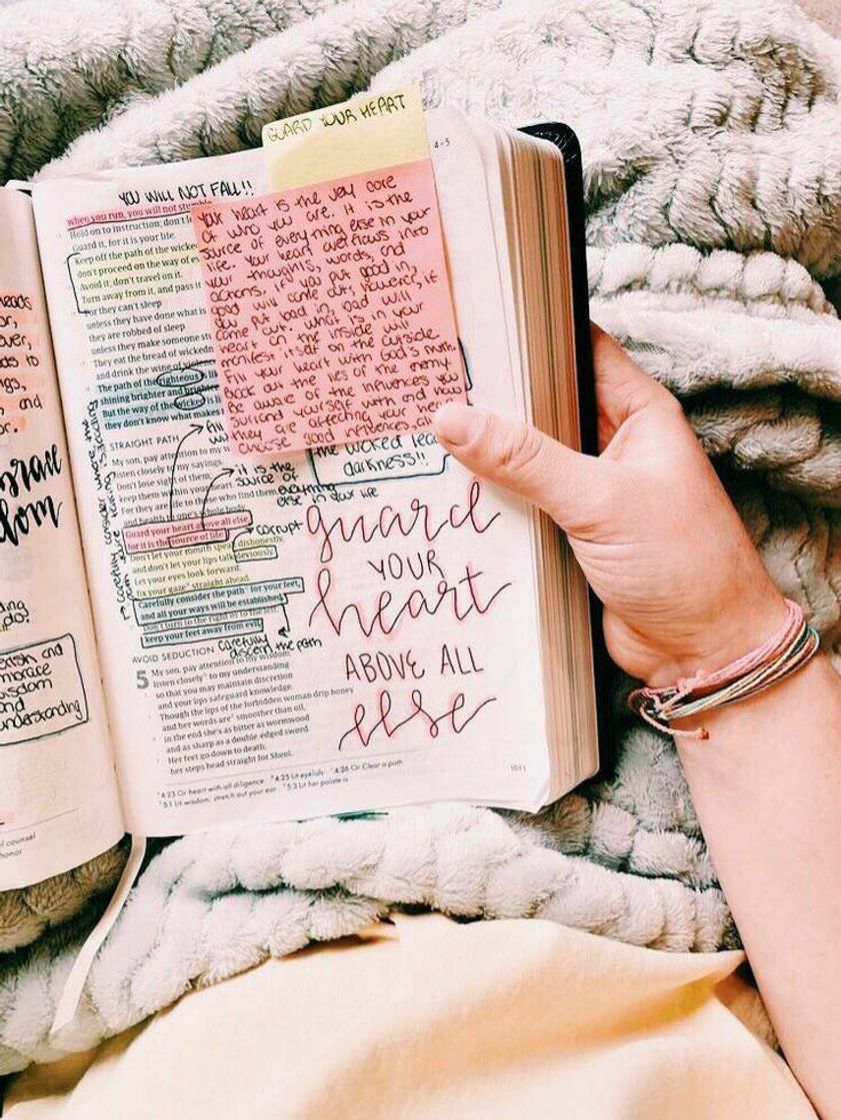 GUARD YOUR HEART
4-5
YOU WILL NOT FALL!!
when you run, you will not stumble
Hold on to instruction; don't le
Guard it, for it is your life.
Keep off the path of the wicked
don't proceed on the way of ev
Avoid it; don't travel on it.
Turn away from it, and pass it
For they can't sleep
unless they have done what is
they are robbed of sleep
unless they make someone stu
They eat the bread of wickedn
and drink the wine of violence
The path of the righteous
shining brighter and brighter
But the way of the wicked
they don't know what makes
Your heart is the very core
of who you are. It is the
source of everything else in your
life. Your heart overflows into
your thoughts, words, and
actions. If you put good in,
good will come out; however, if
you put bad in, bad will
come out. What is in your
heart on the inside will
manifest itself on the outside
Fill your heart with God's truth
Block out the lies of the enemy.
Be aware of the influences you
surround yourself with and how
they are affecting your hea
choose good influences, al
the wicked lead
darkness!!
STRAIGHT PATH
My son, pay attention to my w
listen closely to my sayings.
Don't lose sight of them;
keep them within your heart.
For they are life to those who find them,
and health to one's whole body.
Guard your heart above all else
for it is the source of life.
Don't let your mouth speak dishonestly,
and don't let your lips talk deviously.
Let your eyes look forward;
fix your gaze straight ahead.
Carefully consider the path for your feet,
and all your ways will be established.
Don't turn to the right or to the left;
keep your feet away from evil.
it is the
source of
everything
else in your life
corrupt
carefully
discern the path
carefully consider where the
guard
YOUR
heart
ABOVE ALL
else
AVOID SEDUCTION
5 My son, pay attention to my wisdom;
listen closely to my understanding
so that you may maintain discretion
and your lips safeguard knowledge.
Though the lips of the forbidden woman drip honey
and her words are smoother than oil,
in the end she's as bitter as wormwood
and as sharp as a double-edged sword.
Her feet go down to death;
her steps head straight for Sheol.
4:23 Or heart with all diligence 4:25 Lit eyelids 4:26 Or Clear a path
5:1 Lit wisdom; stretch out your ear 5:3 Lit her palate is
and
and
wisdom
and
understanding
counsel
honor